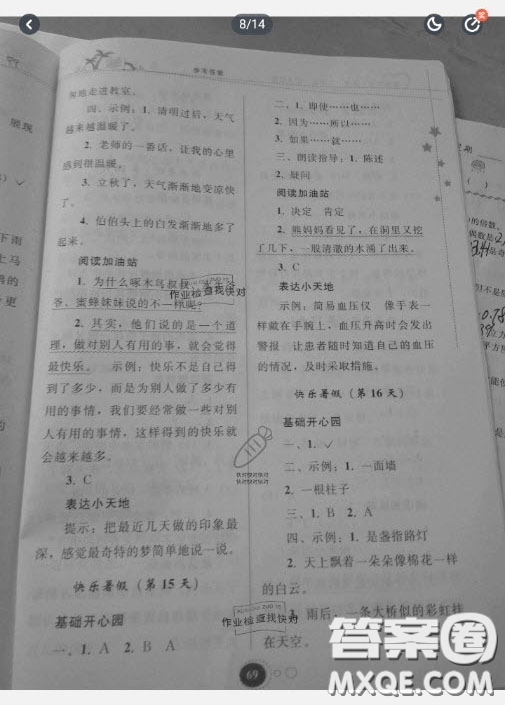 8/14
参考答案
灰地走进教室。
四、示例：1. 清明过后，天气
越来越温暖了。
2. 老师的一番话，让我的心里
感到很温暖。
3. 立秋了，天气渐渐地变凉快
了。
4. 伯伯头上的白发渐渐地多了
起来。
阅读加油站
1. 为什么啄木鸟叔叔、水牛爷
爷、蜜蜂妹妹说的不一样呢？
2. 其实，他们说的是一个道
理，做对别人有用的事，就会觉得
最快乐。 示例：快乐不是自己得
到了多少，而是为别人做了多少有
用的事情，我们要经常做一些对别
人有用的事情，这样得到的快乐就
会越来越多。
3. C
表达小天地
提示：把最近几天做的印象最
深，感觉最奇特的梦简单地说一说。
快乐暑假（第 15 天）
基础开心园
一、1. A 2. B A
二、1. 即使……也……
2. 因为……所以……
3. 如果……就……
三、朗读指导：1. 陈述
2. 疑问
阅读加油站
1. 决定 肯定
2. 熊妈妈看见了，在洞里又挖
了几下，一股清澈的水涌了出来。
3. C
表达小天地
示例：简易血压仪 像手表一
样戴在手腕上，血压升高时会发出
警报 让患者随时知道自己的血压
的情况，及时采取措施。
快乐暑假（第 16 天）
基础开心园
一、1. ✓
二、示例：1. 一面墙
2. 一根柱子
三、1. B 2. A
四、示例：1. 是盏指路灯
2. 天上飘着一朵朵像棉花一样
的白云。
3. 雨后，一条大桥似的彩虹挂
在天空。
69
作业检查找快对
作业检查找快对
快对快对快对
答案圈
MXQE.COM